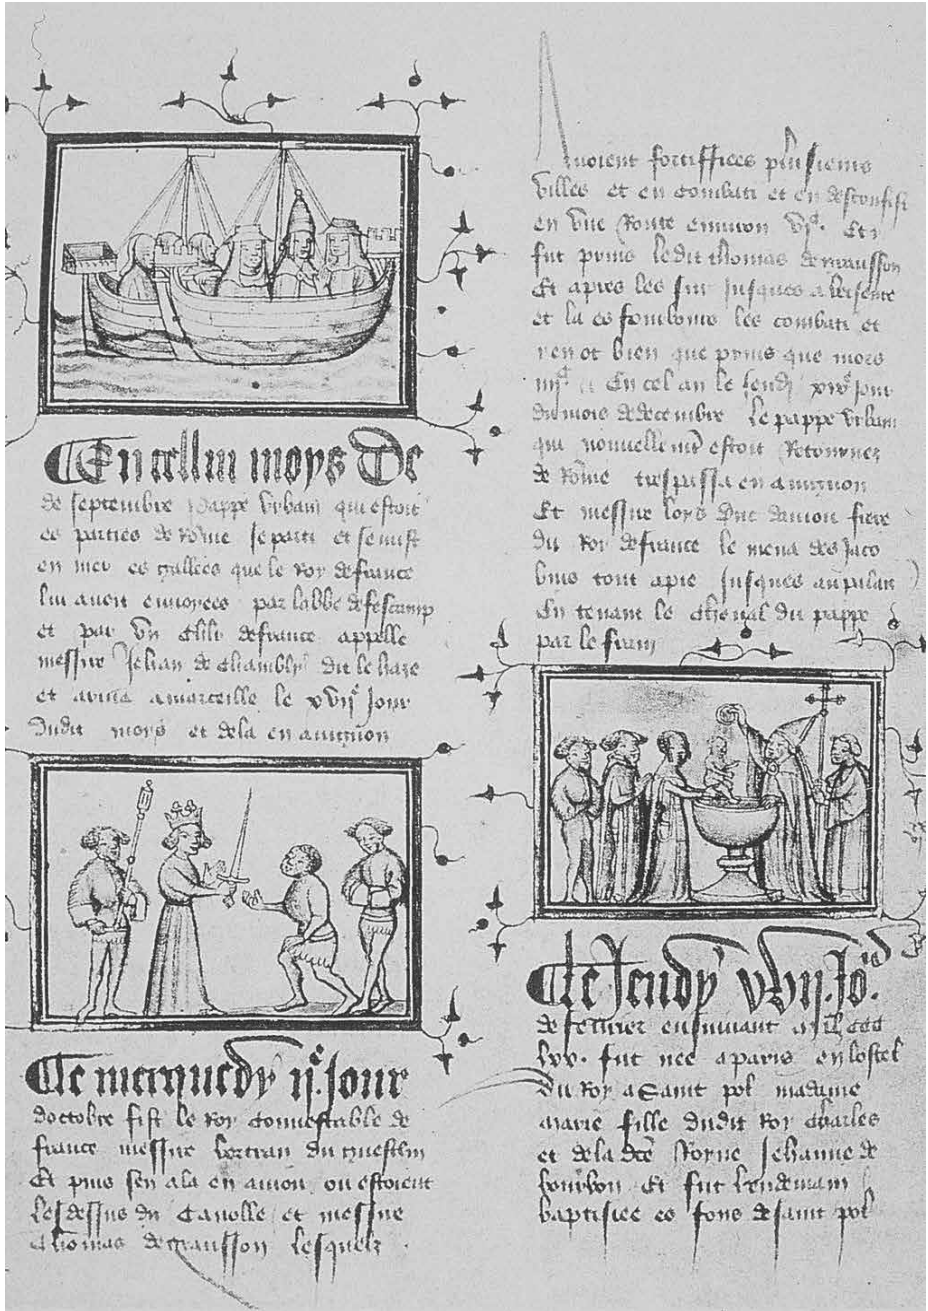 En cellui moys De
de septembre pappe urbain qui estoit
es parties de Romme se parti et se mist
en mer es gallees que le Roy de france
lui avoit envoyees par labbe de fescamp
et par un chlr de france appelle
messire Jehan de Chambly dit le haze
et ariva a marceille le xviie Jour
dudit moys et de la en avignon
Le merquedy iie. Jour
doctobre fist le Roy Connestable de
france messire bertran du guesclin
Et puis sen ala en aniou ou estoient
Les dessus du Canolle et messire
Thomas de gransson Lesquelz
Avoient fortiffiees plusieurs
villes et en Combati et en desconfist
en une Route environ Et y
fut prins ledit thomas de gransson
Et apres les sui Jusques a
et la es les combati et
ren ot bien que prins que mors
En cel an le Jour
du mois de decembre le pappe urbain
qui nouvellemt estoit Retournez
de Romme trespassa en avignon
Et messire loys Duc daniou frere
du Roy de france le mena des Jaco
bins tout a pie Jusques au palais
En tenant le Cheval du pappe
par le frain
Le Jeudy Jo.
de fevrier ensuivant mil CCC
lxx. fut nee a paris en lostel
du Roy a Saint pol madame
marie fille dudit Roy Charles
et de la dce Royne Jehanne de
bourbon Et fut lendemain
baptisiee es fons de saint pol